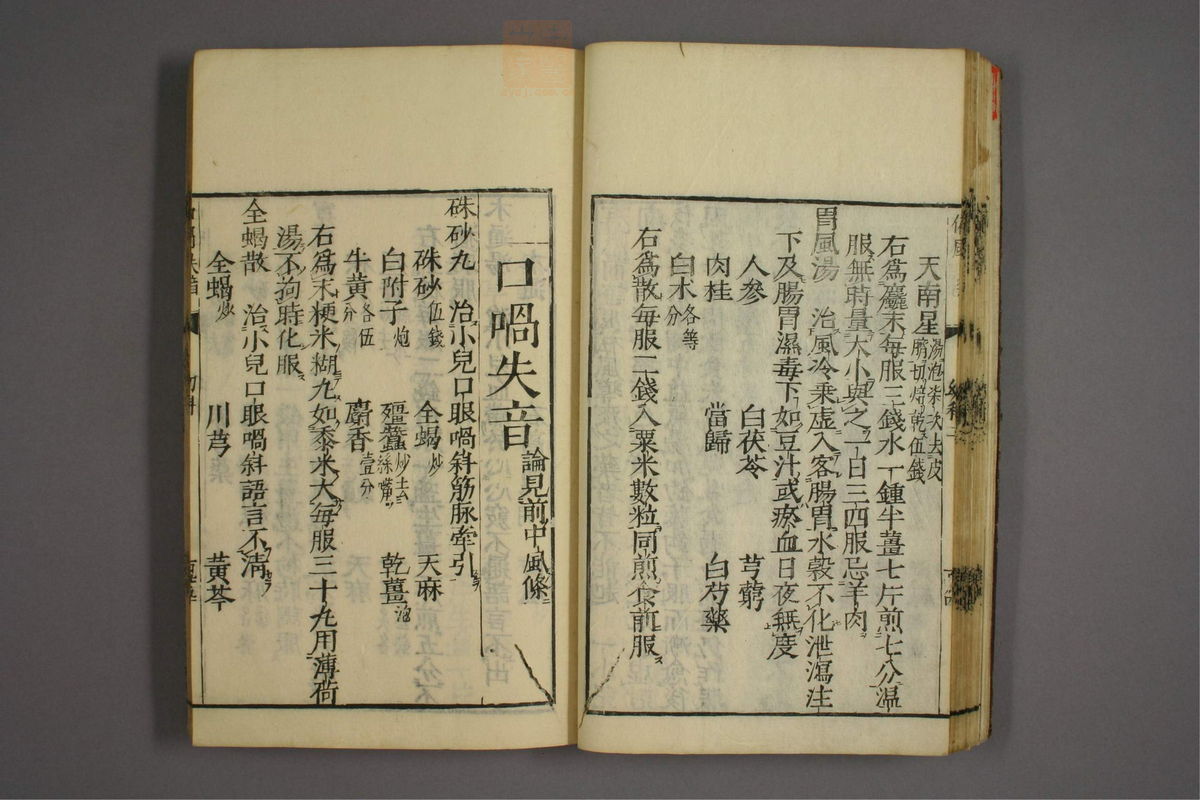 天南星湯泡柒次去皮臍切焙乾伍錢
右爲麤末每服三錢水一鍾半薑七片煎七分温
服無時量大小與之一日三四服忌羊肉
胃風湯 治風冷乗虚入客腸胃水穀不化泄瀉注
下及腸胃濕毒下如豆汁或瘀血日夜無度
人參 白茯苓 芎藭
肉桂 當歸 白芍藥
白术各等分
右爲散每服二錢入粟米數粒同煎食前服
口喎失音論見前中風條
硃砂丸 治小兒口眼喎斜筋脉牽引
硃砂伍錢 全蝎炒 天麻
白附子炮 殭蠶炒去絲嘴 乾薑泡
牛黄各伍分 麝香壹分
右爲末粳米糊丸如黍米大每服三十九用薄荷
湯不拘時化服
全蝎散 治小兒口眼喎斜語言不清
全蝎炒 川芎 黄芩